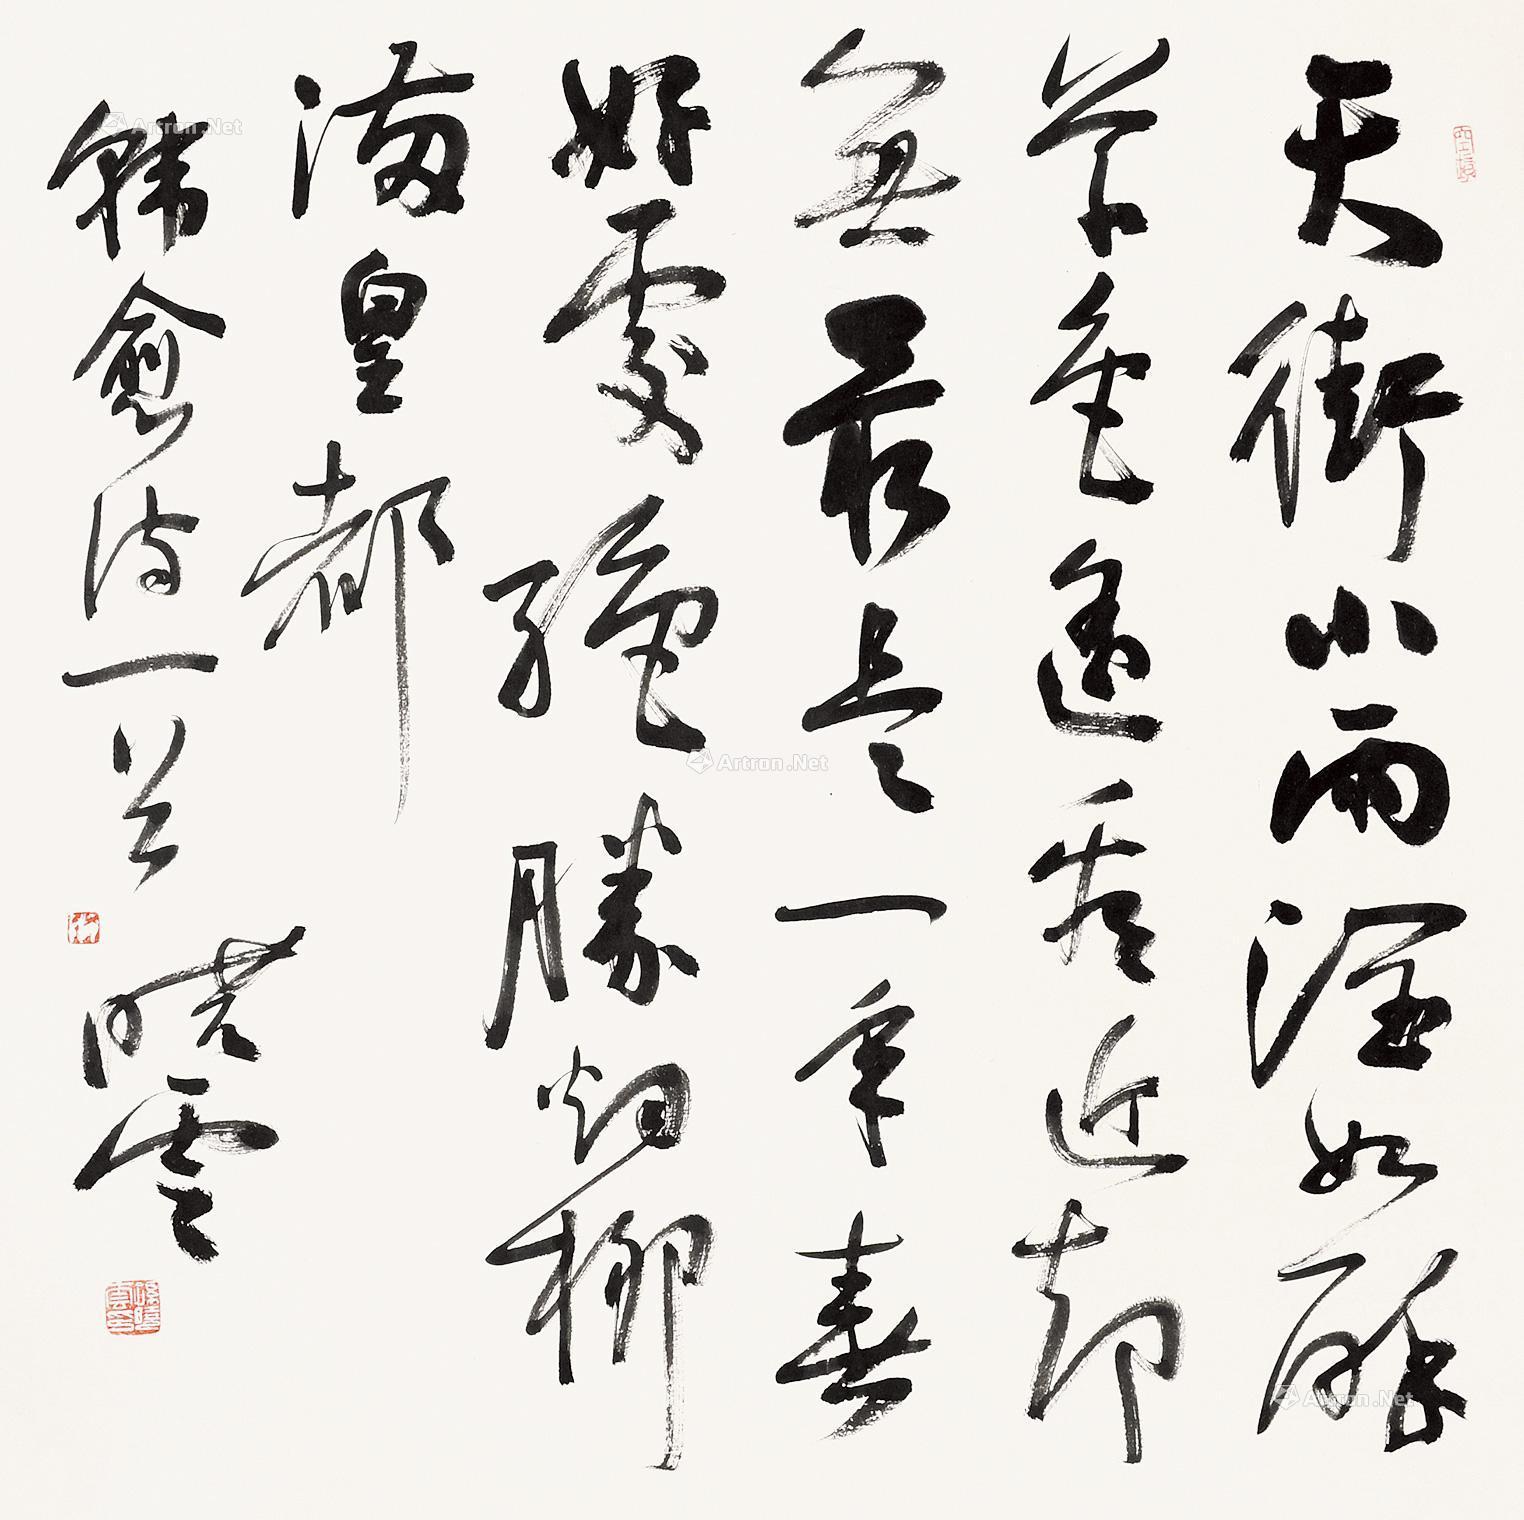 天街小雨潤如酥
草色遙看近却
無最是一年春
好處絕勝烟柳
滿皇都
韓愈詩一首
曉雲
孫曉雲印
Artron.Net
Artron.Net
Artron.Net